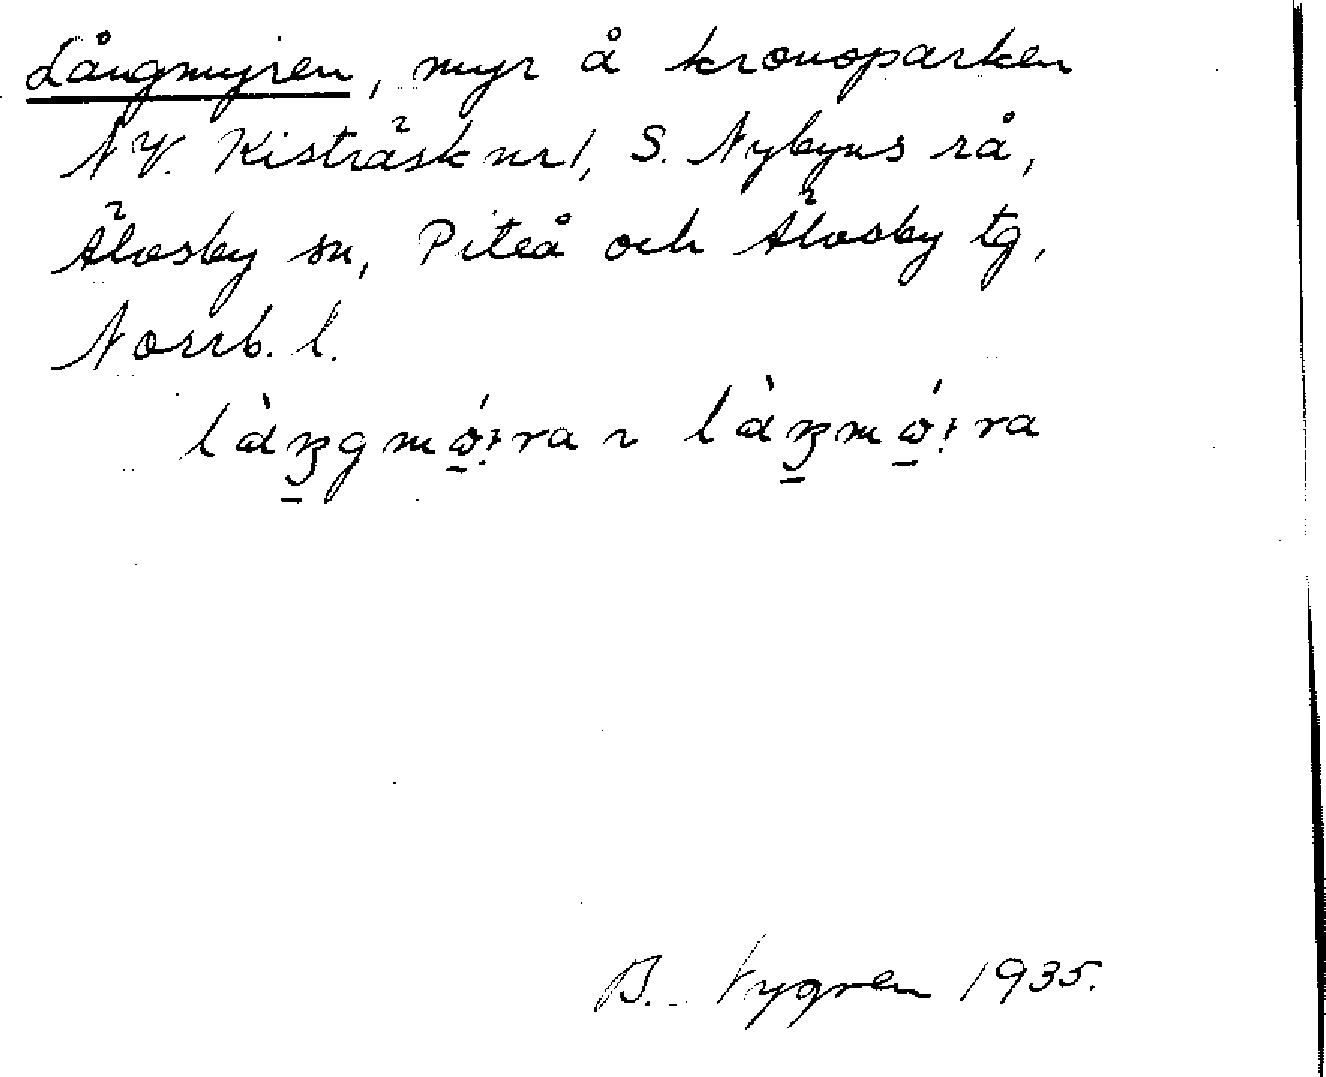 Långmyren, myr å kronoparken
NV. Kisträsk nr 1, S. Nybyns rå,
Älvsby sn, Piteå och Älvsby tg,
Norrb. l.
B. Nygren 1935.